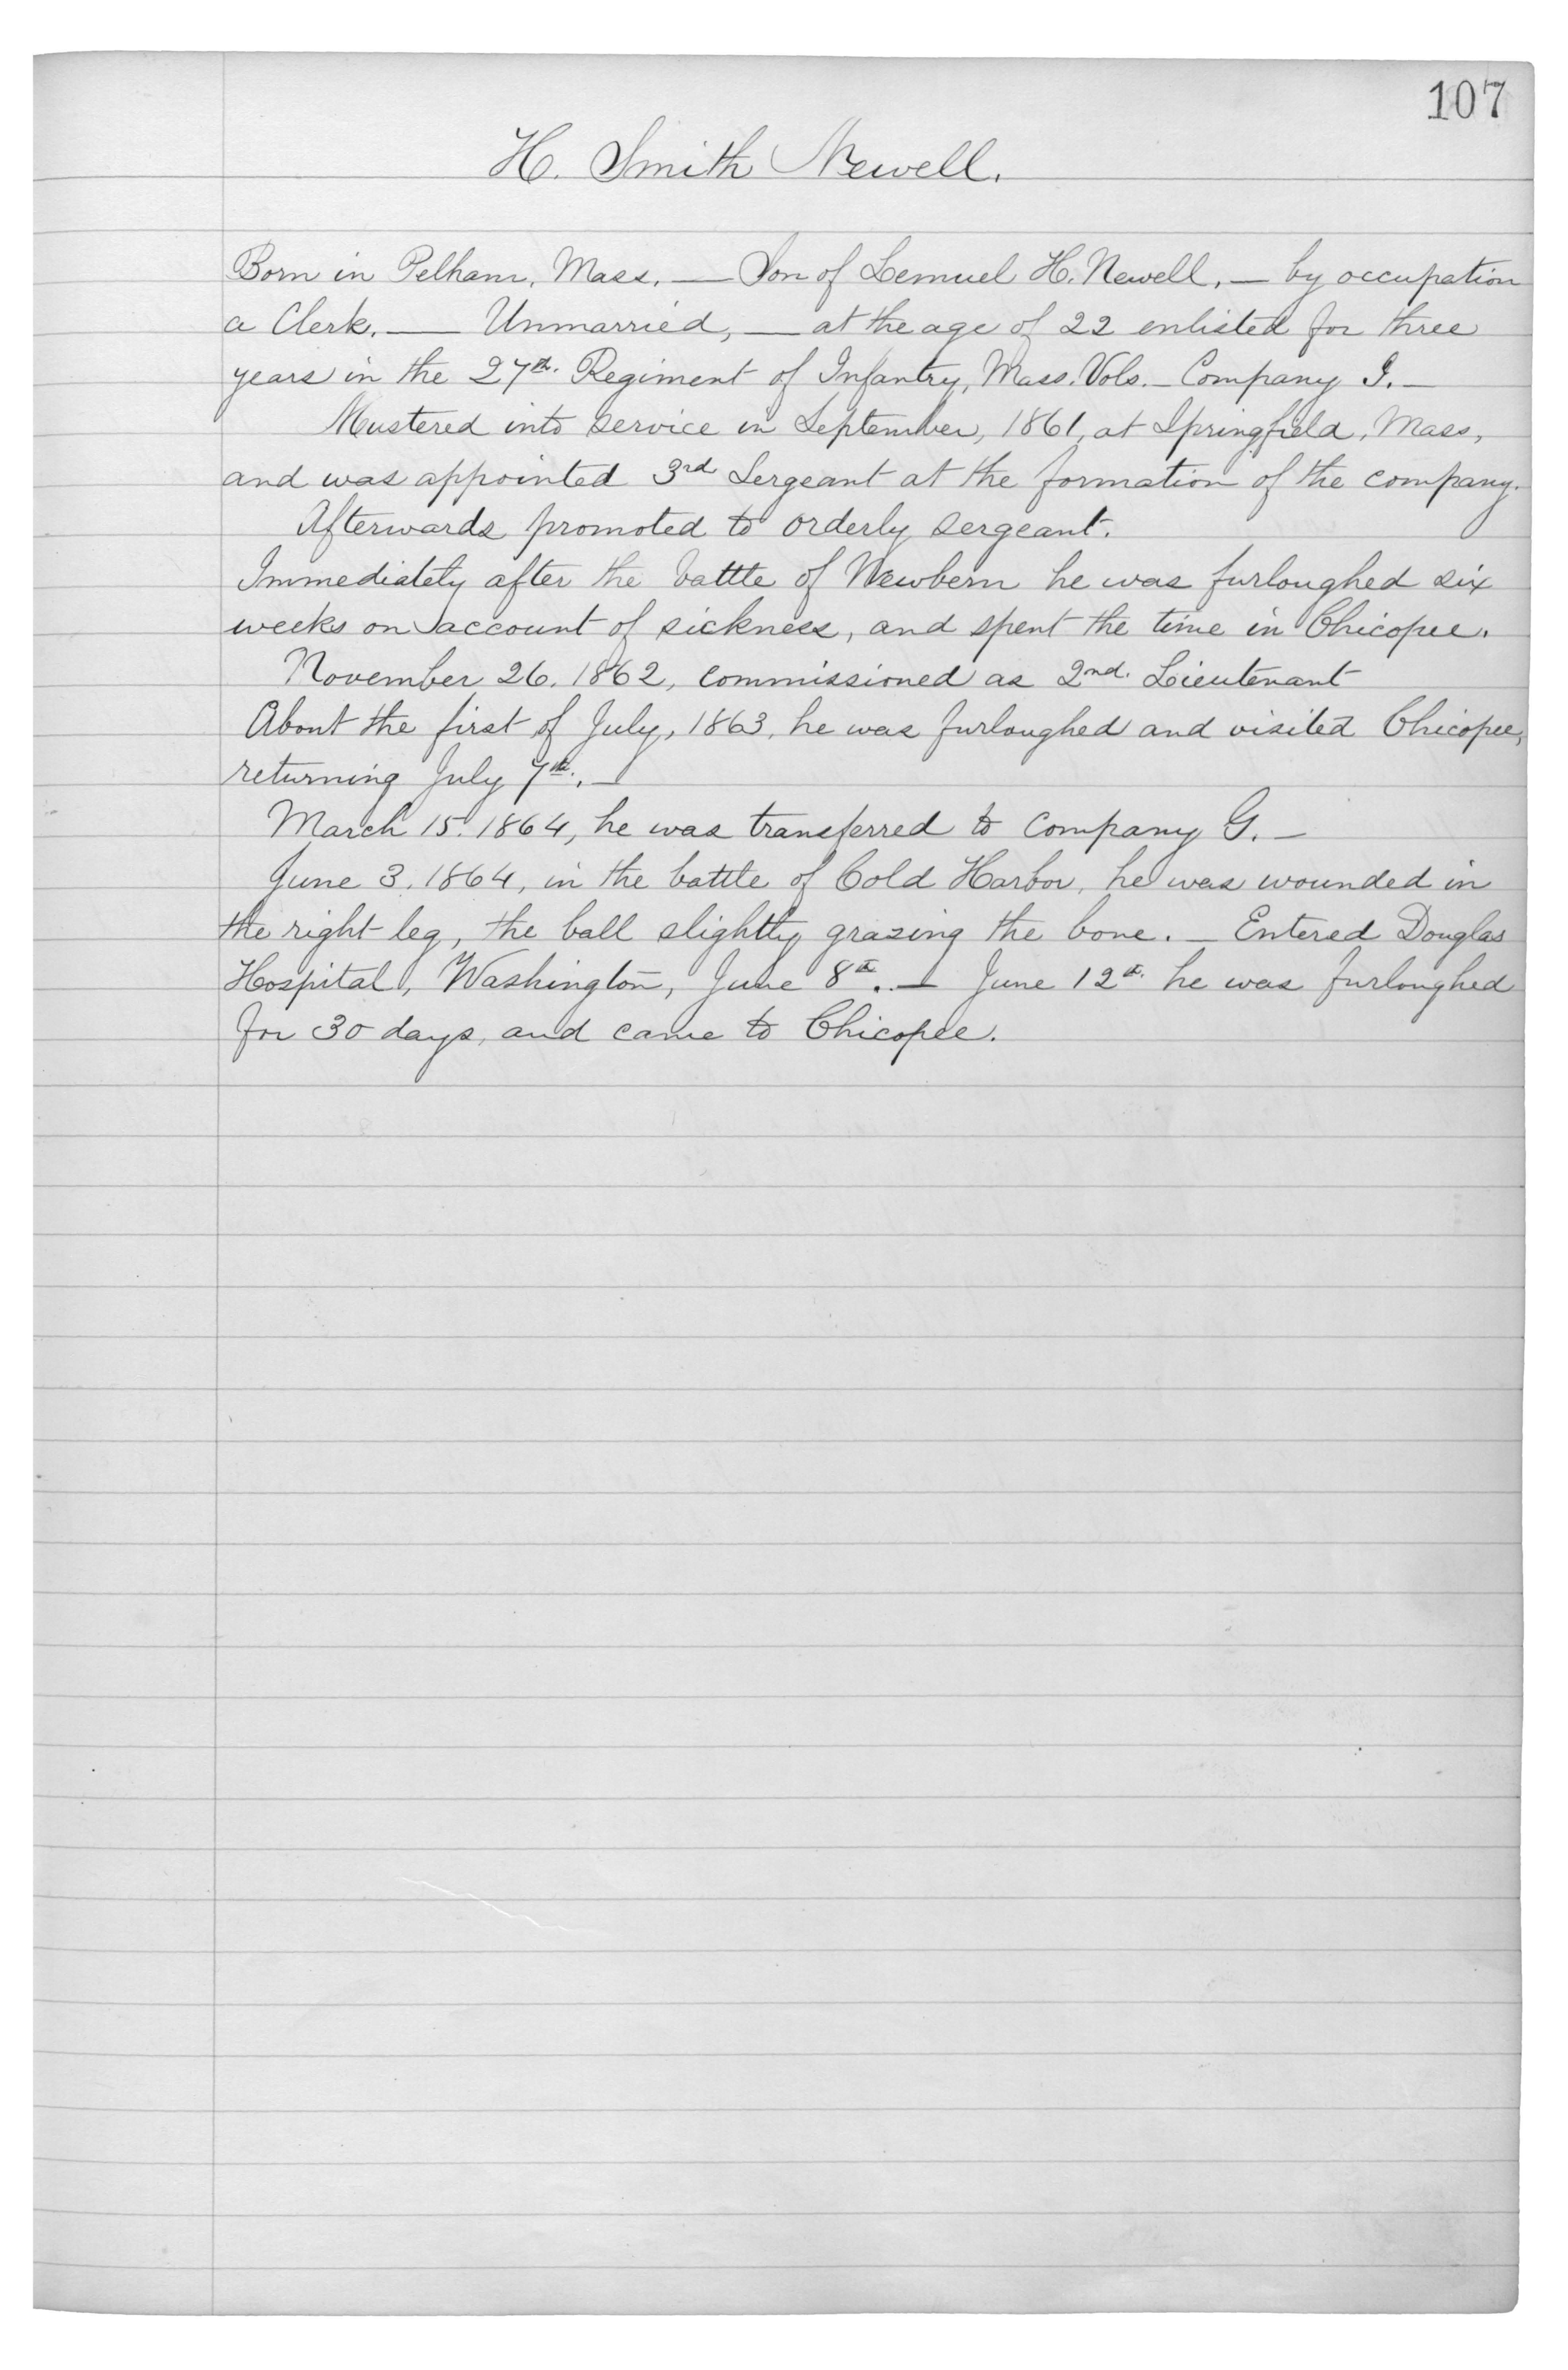 107
H. Smith Newell.
Born in Pelham, Mass. — Son of Lemuel H. Newell, — by occupation
a Clerk. — Unmarried, — at the age of 22 enlisted for three
years in the 27th. Regiment of Infantry, Mass. Vols. — Company I. —
Mustered into service in September, 1861, at Springfield, Mass,
and was appointed 3rd Sergeant at the formation of the company.
Afterwards promoted to orderly sergeant.
Immediately after the battle of Newbern he was furloughed six
weeks on account of sickness, and spent the time in Chicopee.
November 26, 1862, commissioned as 2nd. Lieutenant
About the first of July, 1863, he was furloughed and visited Chicopee,
returning July 7th. —
March 15. 1864, he was transferred to Company G. —
June 3, 1864, in the battle of Cold Harbor, he was wounded in
the right leg, the ball slightly grazing the bone. — Entered Douglas
Hospital, Washington, June 8th. — June 12th. he was furloughed
for 30 days, and came to Chicopee.